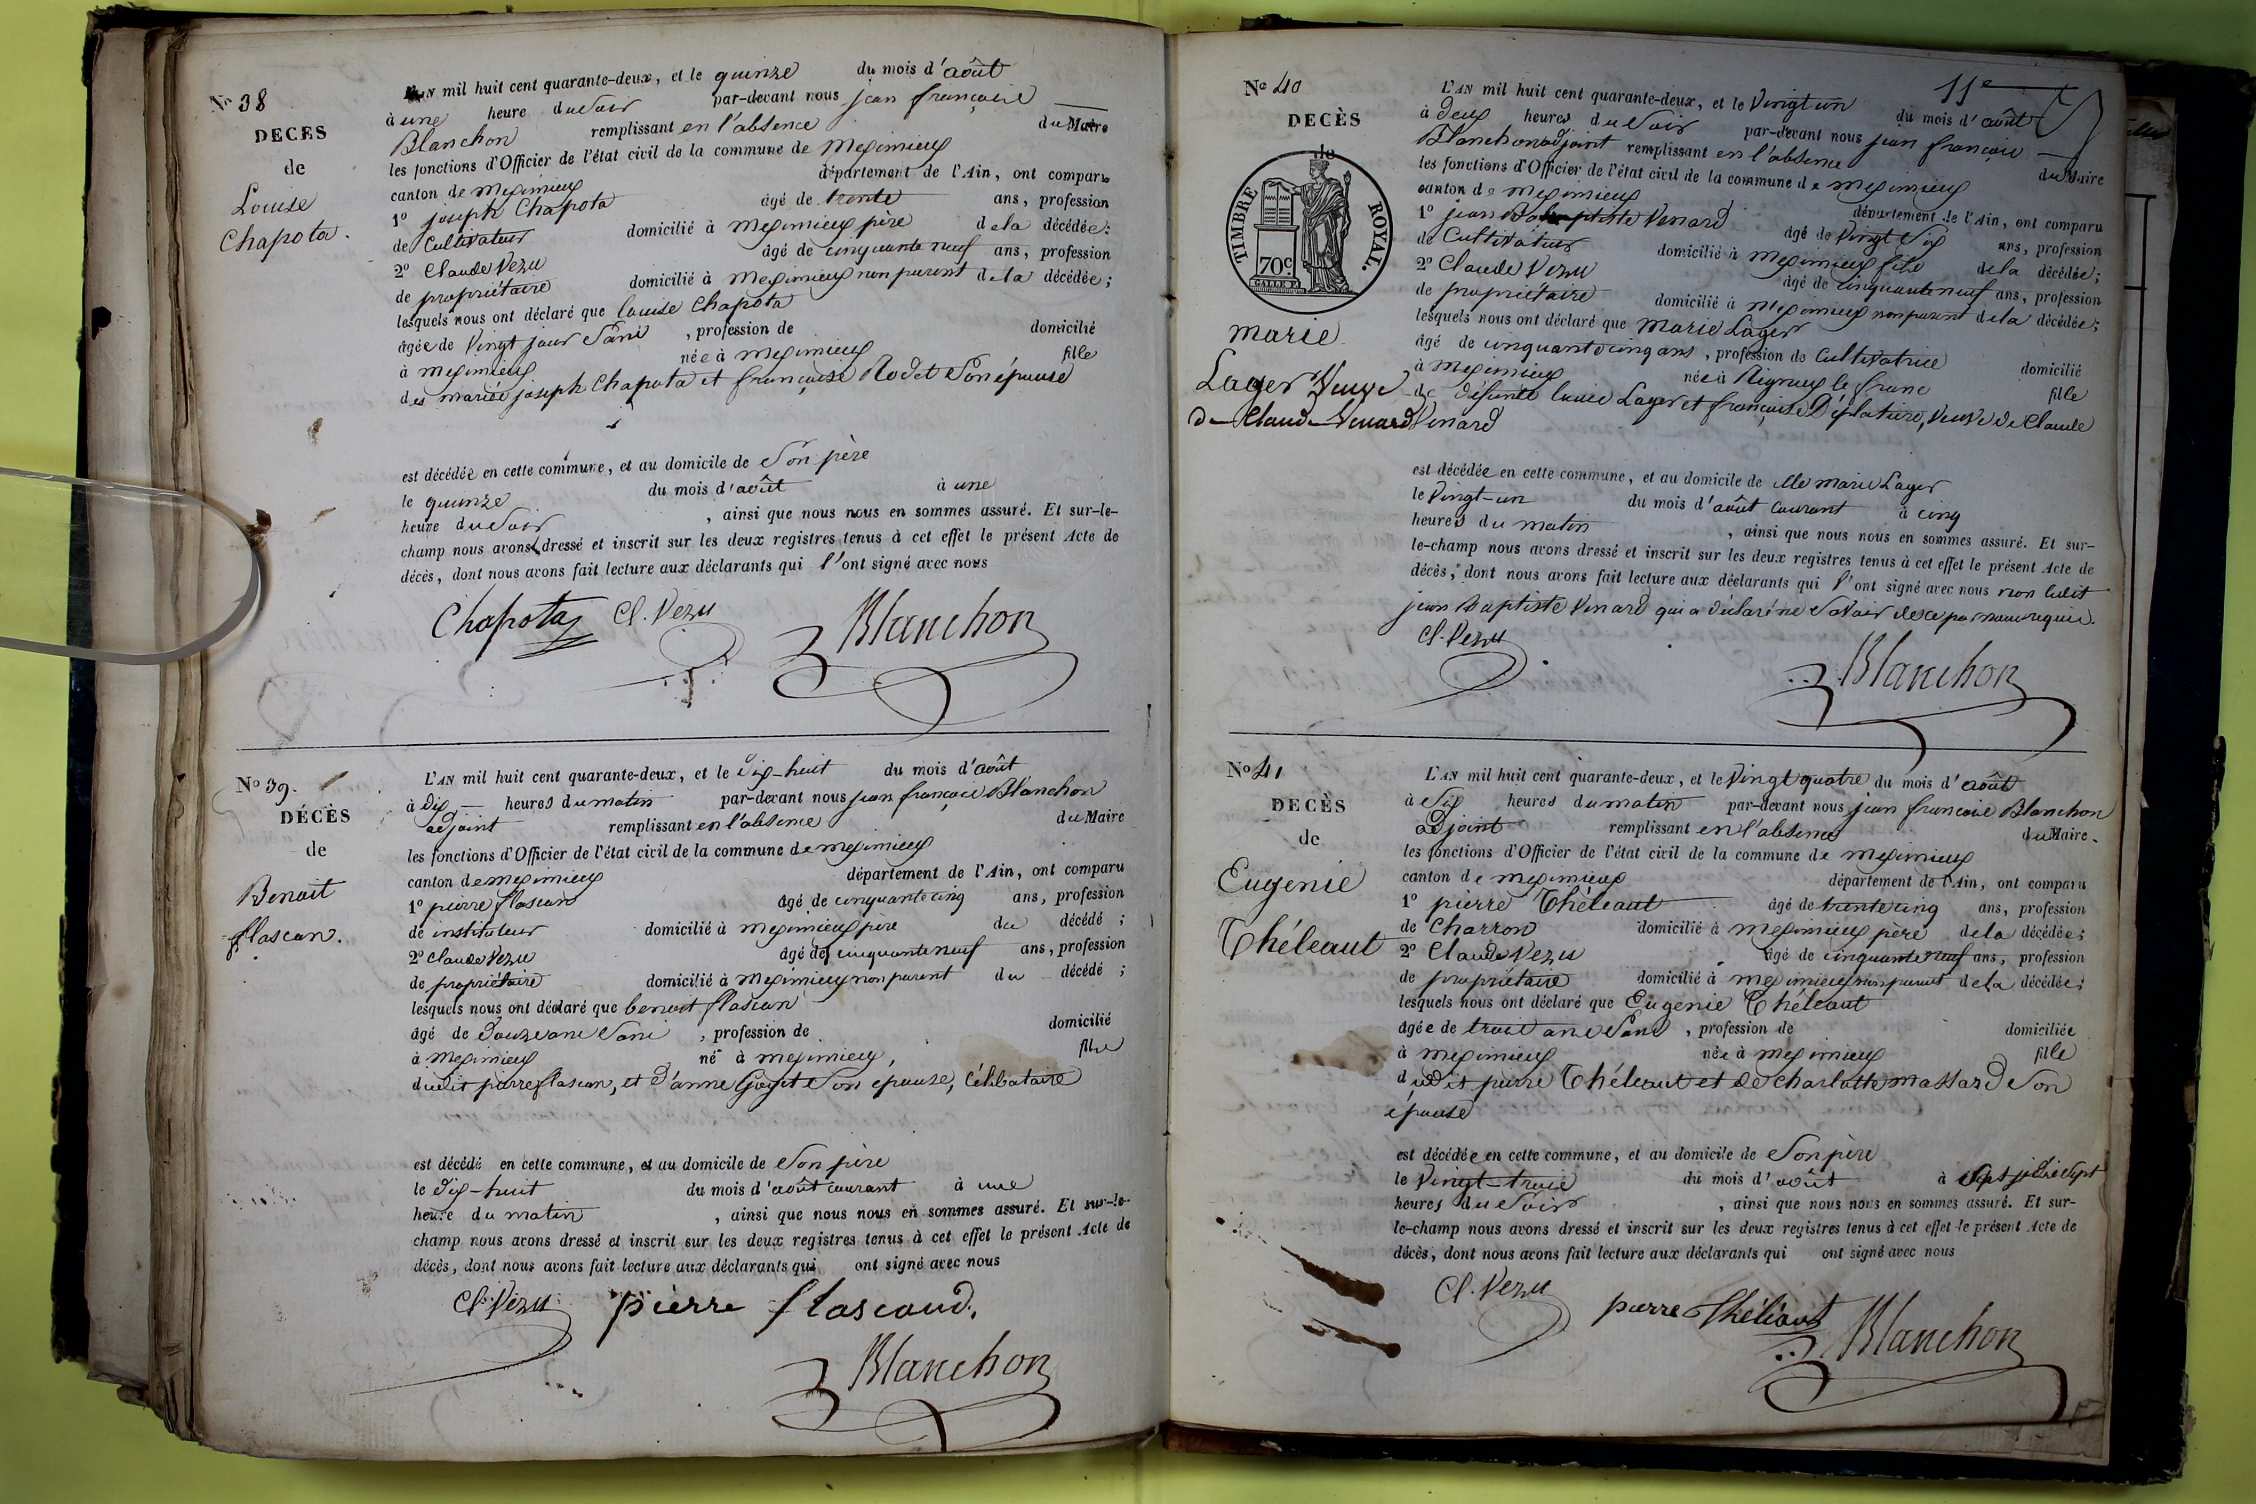 N° 38
DECES
de
Louise
Chapota.
L'AN mil huit cent quarante-deux, et le quinze du mois d'août
à une heure du Soir par-devant nous jean françois
Blanchon remplissant en l'absence du Maire
les fonctions d'Officier de l'état civil de la commune de Meximieux
canton de Meximieux département de l'Ain, ont comparu
1° joseph Chapota âgé de trente ans, profession
de Cultivateur domicilié à Meximieux père de la décédée;
2° Claude Vezu âgé de cinquante neuf ans, profession
de propriétaire domicilié à Meximieux non parent de la décédée;
lesquels nous ont déclaré que louise Chapota
âgée de Vingt jours Sans , profession de domicilié
à Meximieux née à Meximieux fille
des mariés joseph Chapota et françoise Rodet Son épouse
est décédée en cette commune, et au domicile de Son père
le quinze du mois d'août à une
heure du Soir , ainsi que nous nous en sommes assuré. Et sur-le-
champ nous avons dressé et inscrit sur les deux registres tenus à cet effet le présent Acte de
décès, dont nous avons fait lecture aux déclarants qui l'ont signé avec nous
Chapota Cl. Vezu Blanchon
N° 39.
DÉCÈS
de
Benoit
flascan.
L'AN mil huit cent quarante-deux, et le Dix-huit du mois d'août
à dix heures du matin par-devant nous jean françois Blanchon
adjoint remplissant en l'absence du Maire
les fonctions d'Officier de l'état civil de la commune de Meximieux
canton de Meximieux département de l'Ain, ont comparu
1° pierre flascan âgé de cinquante cinq ans, profession
de instituteur domicilié à Meximieux père du décédé;
2° Claude Vezu âgé de cinquante neuf ans, profession
de propriétaire domicilié à Meximieux non parent du décédé;
lesquels nous ont déclaré que benoit flascan
âgé de Douze ans Sans , profession de domicilié
à Meximieux né à Meximieux, fils
dudit pierre flascan, et d'anne Son épouse, Célibataire
est décédé en cette commune, et au domicile de Son père
le Dix-huit du mois d'août courant à une
heure du matin , ainsi que nous nous en sommes assuré. Et sur-le-
champ nous avons dressé et inscrit sur les deux registres tenus à cet effet le présent Acte de
décès, dont nous avons fait lecture aux déclarants qui ont signé avec nous
Cl. Vezu pierre flascaud.
Blanchon
11e
N° 40
DECÈS
de
TIMBRE ROYAL.
70c.
marie
Lager Veuve
de Claude Venard
L'AN mil huit cent quarante-deux, et le Vingt un du mois d'août
à Deux heures du Soir par-devant nous jean françois
Blanchon adjoint remplissant en l'absence du Maire
les fonctions d'Officier de l'état civil de la commune de Meximieux
canton de Meximieux département de l'Ain, ont comparu
1° jean Baptiste Venard âgé de Vingt Six ans, profession
de Cultivateur domicilié à Meximieux fils de la décédée;
2° Claude Vezu âgé de cinquante neuf ans, profession
de propriétaire domicilié à Meximieux non parent de la décédée;
lesquels nous ont déclaré que Marie Lager
âgé de cinquante cinq ans, profession de Cultivatrice domicilié
à Meximieux née à Rignieux le franc fille
de défunts Lager et françoise Veuve de Claude
Venard
est décédée en cette commune, et au domicile de elle marie Lager
le Vingt-un du mois d'août courant à cinq
heures du matin , ainsi que nous nous en sommes assuré. Et sur-
le-champ nous avons dressé et inscrit sur les deux registres tenus à cet effet le présent Acte de
décès, dont nous avons fait lecture aux déclarants qui l'ont signé avec nous non ledit
jean Baptiste Venard qui a déclaré ne Savoir de ce par nous requis.
Cl. Vezu Blanchon
N° 41
DECÈS
de
Eugenie
Théleaut
L'AN mil huit cent quarante-deux, et le Vingt quatre du mois d'août
à Six heures du matin par-devant nous jean françois Blanchon
adjoint remplissant en l'absence du Maire.
les fonctions d'Officier de l'état civil de la commune de Meximieux
canton de Meximieux département de l'Ain, ont comparu
1° pierre Théleaut âgé de trente cinq ans, profession
de Charron domicilié à Meximieux père de la décédée;
2° Claude Vezu âgé de cinquante neuf ans, profession
de propriétaire domicilié à Meximieux non parent de la décédée;
lesquels nous ont déclaré que Eugenie Théleaut
âgée de trois ans Sans , profession de domiciliée
à Meximieux née à Meximieux fille
dudit pierre Théleaut et de Charlotte Massard Son
épouse
est décédée en cette commune, et au domicile de Son père
le Vingt-trois du mois d'août à Sept je dis Sept
heures du Soir , ainsi que nous nous en sommes assuré. Et sur-
le-champ nous avons dressé et inscrit sur les deux registres tenus à cet effet le présent Acte de
décès, dont nous avons fait lecture aux déclarants qui ont signé avec nous
Cl. Vezu pierre Théleaut Blanchon